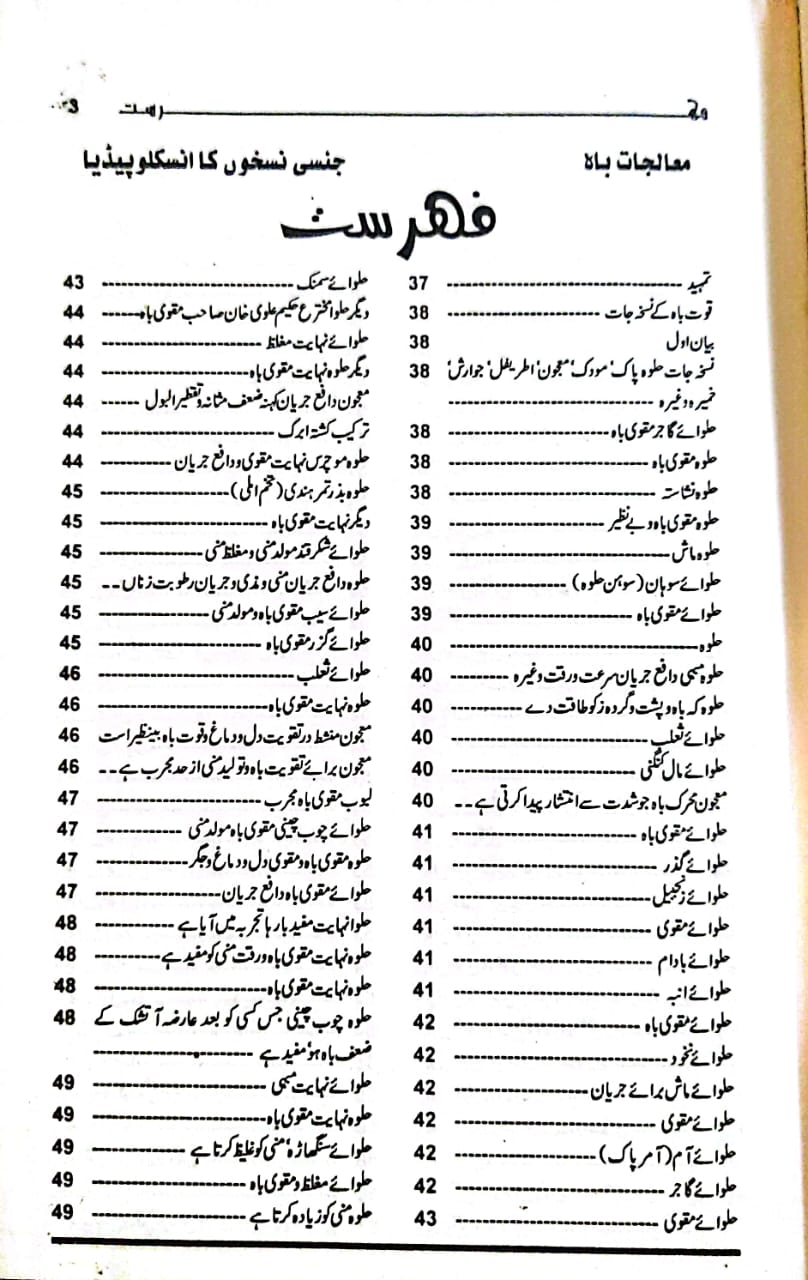 فہرست 3
معالجات باہ
جنسی نسخوں کا انسکلوپیڈیا
فہرست
تمہید 37
قوت باہ کے نسخہ جات 38
بیان اول 38
نسخہ جات حلوہ پاک، مودک، معجون، اطریفل، جوارش، 38
خمیرہ وغیرہ
حلوائے گاجر مقوی باہ 38
حلوہ مقوی باہ 38
حلوہ نشاستہ 38
حلوہ مقوی باہ و بے نظیر 39
حلوہ ماش 39
حلوائے سوہان (سوہن حلوہ) 39
حلوائے مقوی باہ 39
حلوہ 40
حلوہ مبہی دافع جریان سرعت ورقت وغیرہ 40
حلوہ کہ باہ و پشت و گردہ ز کو طاقت دے 40
حلوائے ثعلب 40
حلوائے مال کنگنی 40
معجون محرک باہ جو شدت سے انتشار پیدا کرتی ہے 40
حلوائے مقوی باہ 41
حلوائے گذر 41
حلوائے زنجبیل 41
حلوائے مقوی 41
حلوائے بادام 41
حلوائے انبہ 41
حلوائے مقوی باہ 42
حلوائے نخود 42
حلوائے ماش برائے جریان 42
حلوائے مقوی 42
حلوائے آم (آمر پاک) 42
حلوائے گاجر 42
حلوائے مقوی 43
حلوائے سمنک 43
دیگر حلوا مخترع حکیم علوی خان صاحب مقوی باہ 44
حلوائے نہایت مغلظ 44
دیگر حلوہ نہایت مقوی باہ 44
معجون دافع جریان کہنہ ضعف مثانہ و تقطیر البول 44
ترکیب کشتہ ابرک 44
حلوہ موچرس نہایت مقوی و دافع جریان 44
حلوہ بذر تمر ہندی (تخم املی) 45
دیگر نہایت مقوی باہ 45
حلوائے شکر قند مولد منی و مغلظ منی 45
حلوہ دافع جریان منی و مذی و جریان رطوبت زناں 45
حلوائے سیب مقوی باہ و مولد منی 45
حلوائے گزر مقوی باہ 45
حلوائے ثعلب 46
حلوہ نہایت مقوی باہ 46
معجون منشط در تقویت دل و دماغ و قوت باہ بینظیر است 46
معجون برائے تقویت باہ و تولید منی از حد مجرب ہے 46
لبوب مقوی باہ مجرب 47
حلوائے چوب چینی مقوی باہ مولد منی 47
حلوہ مقوی باہ و مقوی دل و دماغ و جگر 47
حلوائے مقوی باہ دافع جریان 47
حلوا نہایت مفید بارہا تجربہ میں آیا ہے 48
حلوہ نہایت مقوی باہ ورقت منی کو مفید ہے 48
حلوہ نہایت مقوی باہ 48
حلوہ چوب چینی جس کسی کو بعد عارضہ آتشک کے 48
ضعف باہ ہو، مفید ہے
حلوائے نہایت مبہی 49
حلوہ نہایت مقوی باہ 49
حلوائے سنگھاڑہ، منی کو غلیظ کرتا ہے 49
حلوائے مغلظ و مقوی باہ 49
حلوہ منی کو زیادہ کرتا ہے 49